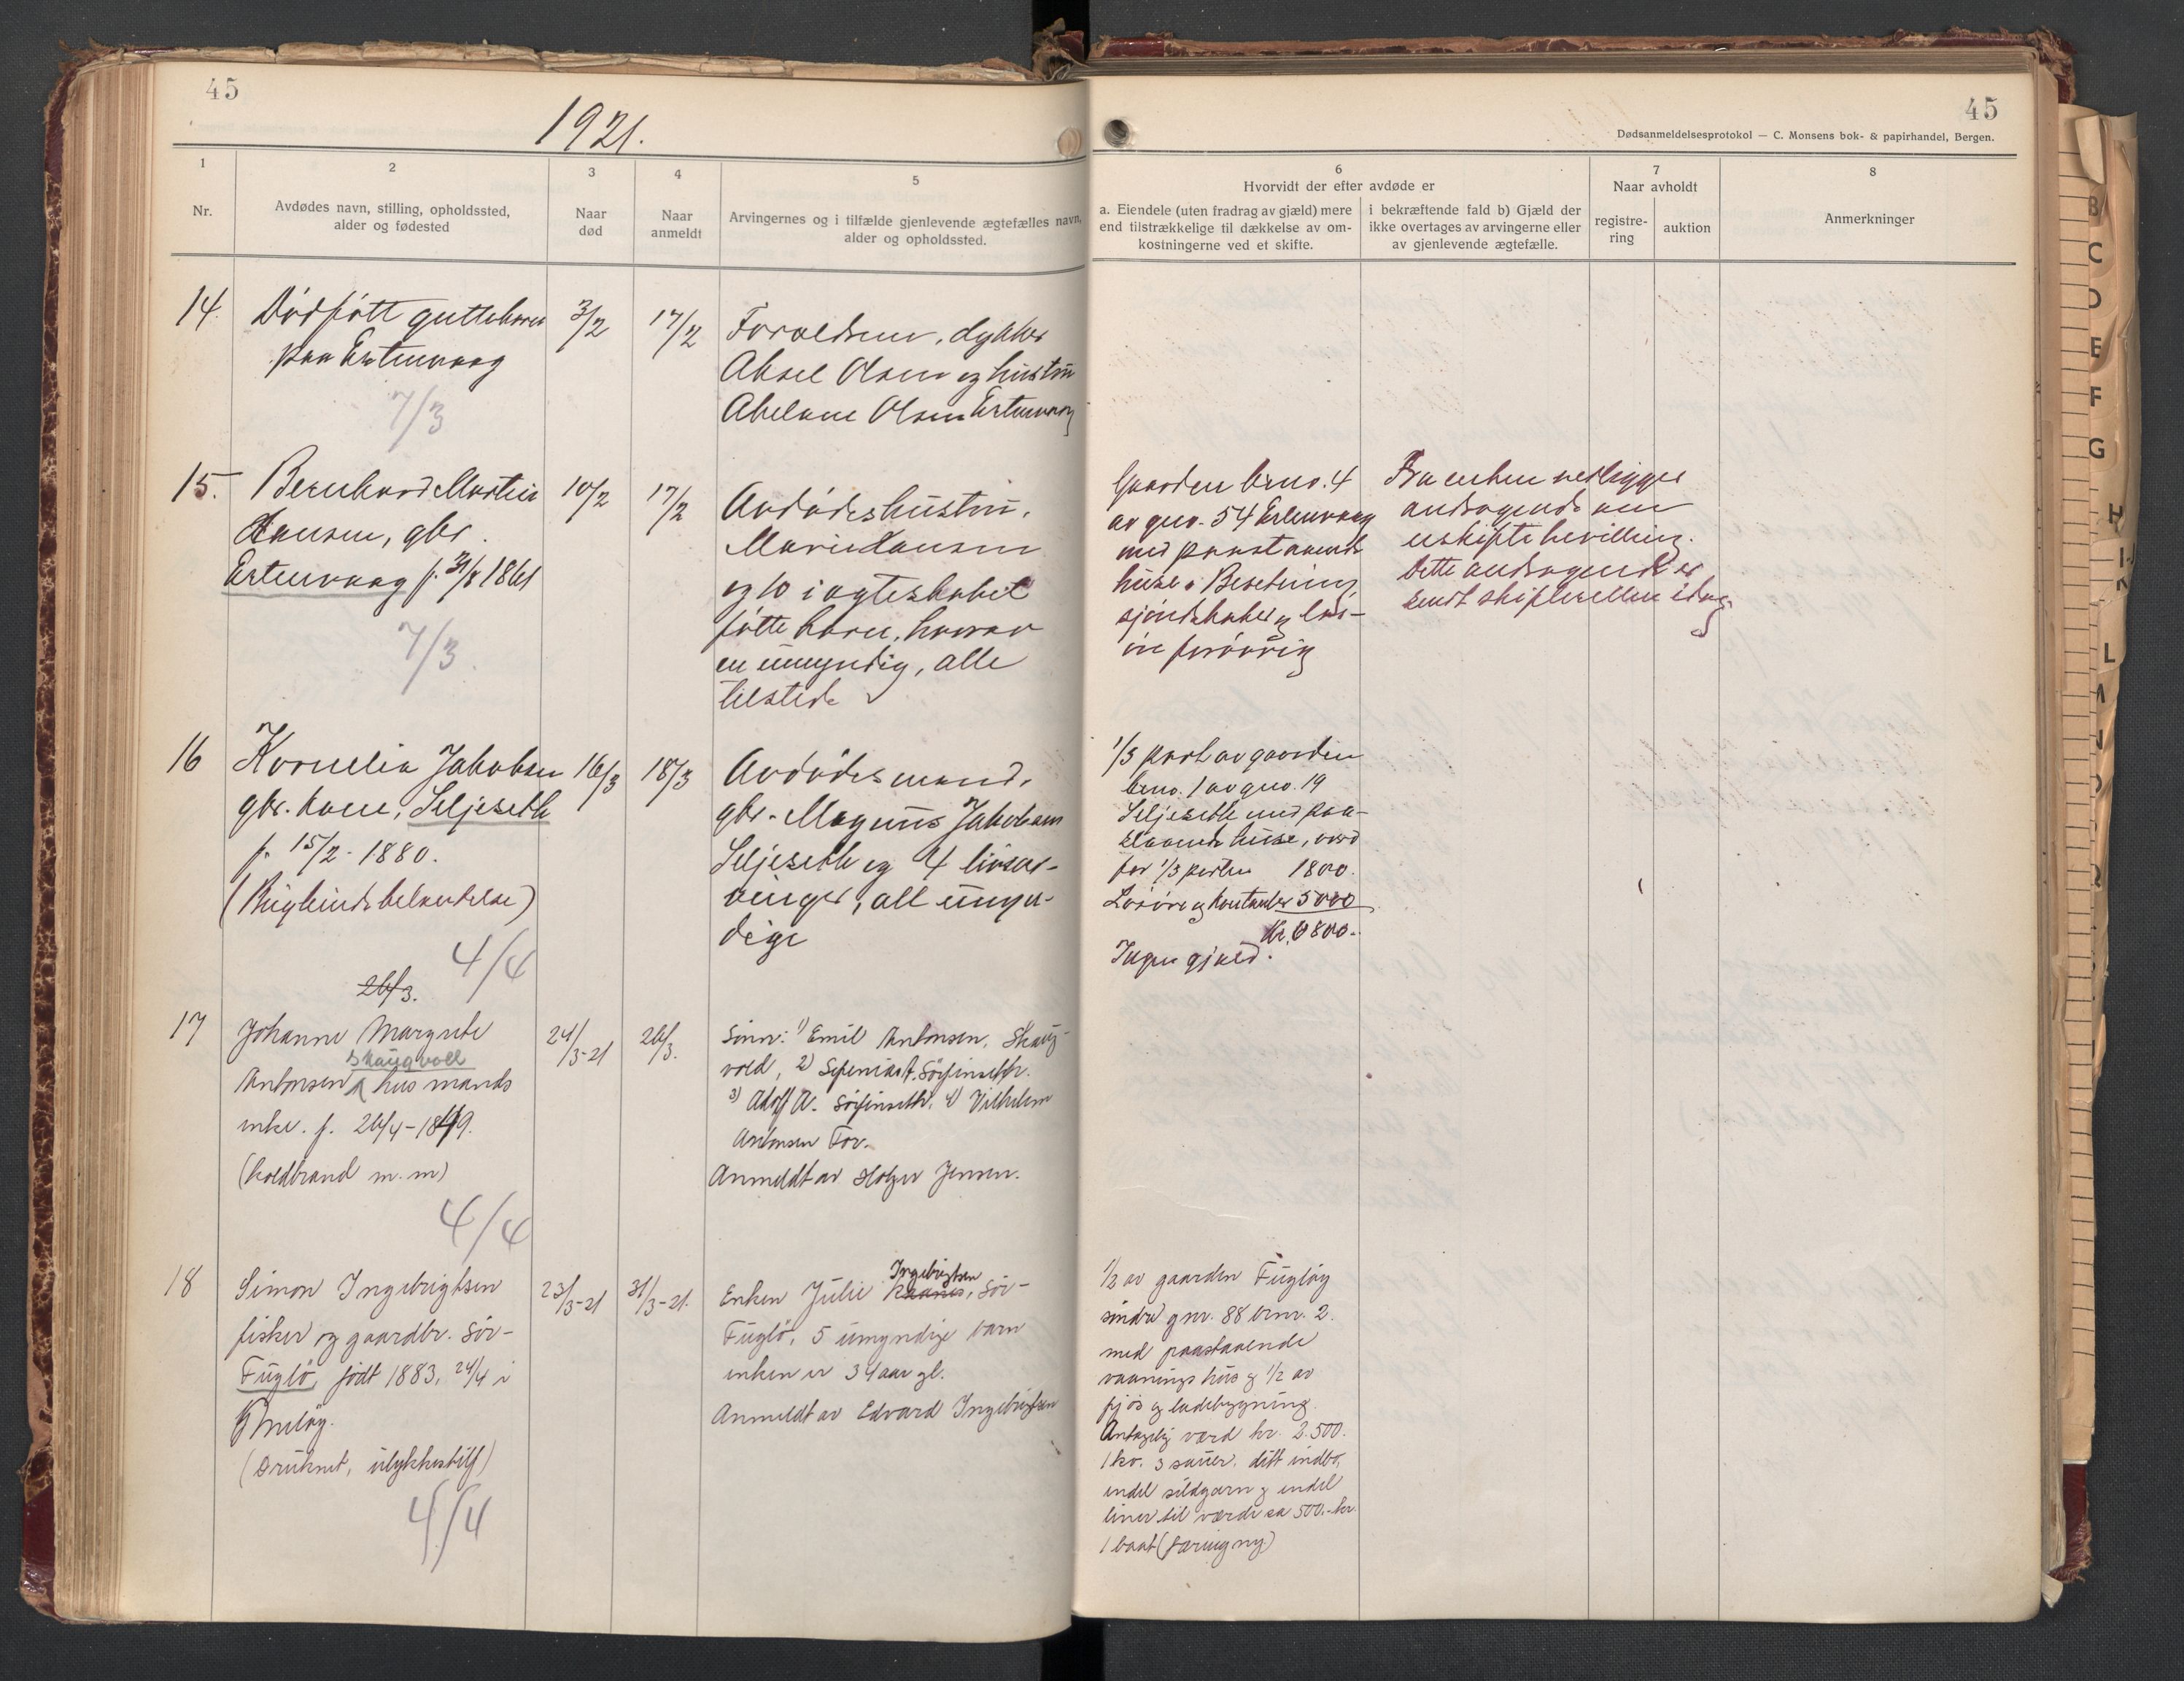 45
1921.
1
2
3
4
5
Nr.
Avdødes navn, stilling, opholdssted,
alder og fødested
Naar
død
Naar
anmeldt
Arvingernes og i tilfælde gjenlevende ægtefælles navn,
alder og opholdssted.
45
Dødsanmeldelsesprotokol — C. Monsens bok- & papirhandel, Bergen.
6
Hvorvidt der efter avdøde er
a. Eiendele (uten fradrag av gjæld) mere
end tilstrækkelige til dækkelse av om-
kostningerne ved et skifte.
i bekræftende fald b) Gjæld der
ikke overtages av arvingerne eller
av gjenlevende ægtefælle.
7
Naar avholdt
registre-
ring
auktion
8
Anmerkninger
14.
Dødfött guttebarn
paa Ertenvaag
7/3
3/2
17/2
Forældrene, dykker
Aksel Olsen og hustru
Abelone Olsen Ertenvaag
15.
Bernhard Martin
Hansen, gbr.
Ertenvaag f. 31/8 1861
7/3.
10/2
17/2
Avdödes hustru,
Marie Hansen
og 10 i egteskabet
fötte barn, hvorav
en umyndig, alle
tilstede
Gaarden brno. 4
av gno. 54 Ertenvaag
med paastaaende
huse. Besetning
sjöredskaber og lös-
öre forövrig
Fra enken vedligger
andragende om
uskiftebevilling.
Dette andragende er
sendt skifteretten idag.
16
Kornelia Jakobsen
gbr. kone, Seljeseth
f. 15/2 - 1880.
4/4
16/3
18/3
Avdödes mand,
gbr. Magnus Jakobsen
Seljeseth og 4 livsar-
vinger, all umyn-
dige
1/3 part av gaarden
brno. 1 av gno. 19
Seljeseth med paa-
staaende huse, værd
for 1/3 parten 1800.
Lösöre og kontanter 5000
Kr. 6800.
Ingen gjæld.
26/3.
17
Johanne Margrete
Skaugvoll
Antonsen husmands
enke. f. 26/4-1849.
(koldbrand m.m)
4/4
24/3-21
26/3.
Sönner: 1) Emil Antonsen, Skaug-
vold, 2) Sefenias A. Sörfinseth.
3) Adolf A. Sörfinseth, 4) Vilhelm
Antonsen For.
Anmeldt av Holger Jensen.
18
Simon Ingebrigtsen
fisker og gaardbr. Sör-
Fuglö, födt 1883, 24/4 i
Gmelöy.
(Druknet, ulykkestilf)
4/4
23/3-21
31/3-21.
Ingebrigtsen
Enken Julie Hansen, Sör-
Fuglö, 5 umyndige barn
enken er 34 aar gl.
Anmeldt av Edvard Ingebrigtsen
1/2 av gaarden Fuglöy
söndre gnr. 88 brnr. 2.
med paastaaende
vaaningshus og 1/2 av
fjös og ladebygning.
Antagelig værd kr. 2.500.
1 ko. 3 sauer. litt indbo,
endel sildgarn og endel
liner til værdi ca 500.- kr.
1 baat (færing ny)
B
C
D
E
F
G
H
L